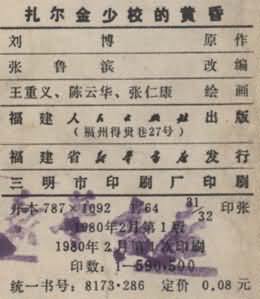 扎尔金少校的黄昏
刘博 原作
张鲁滨 改编
王重义、陈云华、张仁康 绘画
福建人民出版社 出版
(福州得贵巷27号)
福建省新华书店 发行
三明市印刷厂印刷
开本787×1092 1/64 31/32 印张
1980年2月第1版
1980年2月第1次印刷
印数:1—590,500
统一书号:8173·286 定价 0.08元